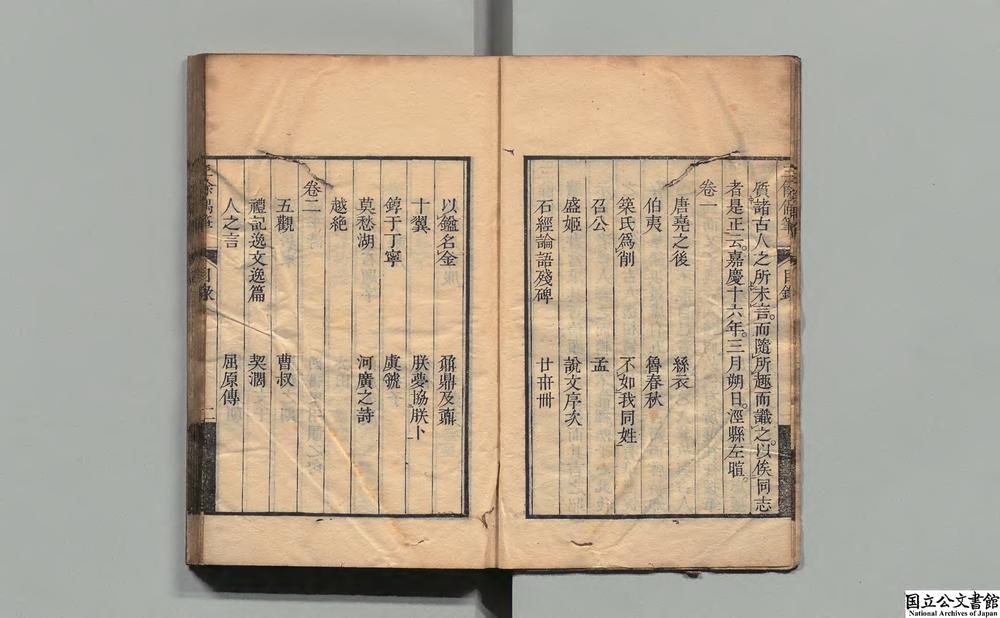 質諸古人之所未言。而隨所趣而識之。以俟同志
者是正云。嘉慶十六年三月朔日。涇縣左暄。
卷一
唐堯之後 絲衣
伯夷 魯春秋
築氏爲削 不如我同姓
召公 孟
盛姬 說文序次
石經論語殘碑 廿卅卌
三餘偶筆 目錄
以鑑名金 鼐鼎及鼒
十翼 朕夢協朕卜
錞于丁寧 虞虢
莫愁湖 河廣之詩
越絶
卷二
五觀 曹叔
禮記逸文逸篇 契濶
人之言 屈原傳
三餘偶筆 目錄 二
国立公文書館
National Archives of Japan